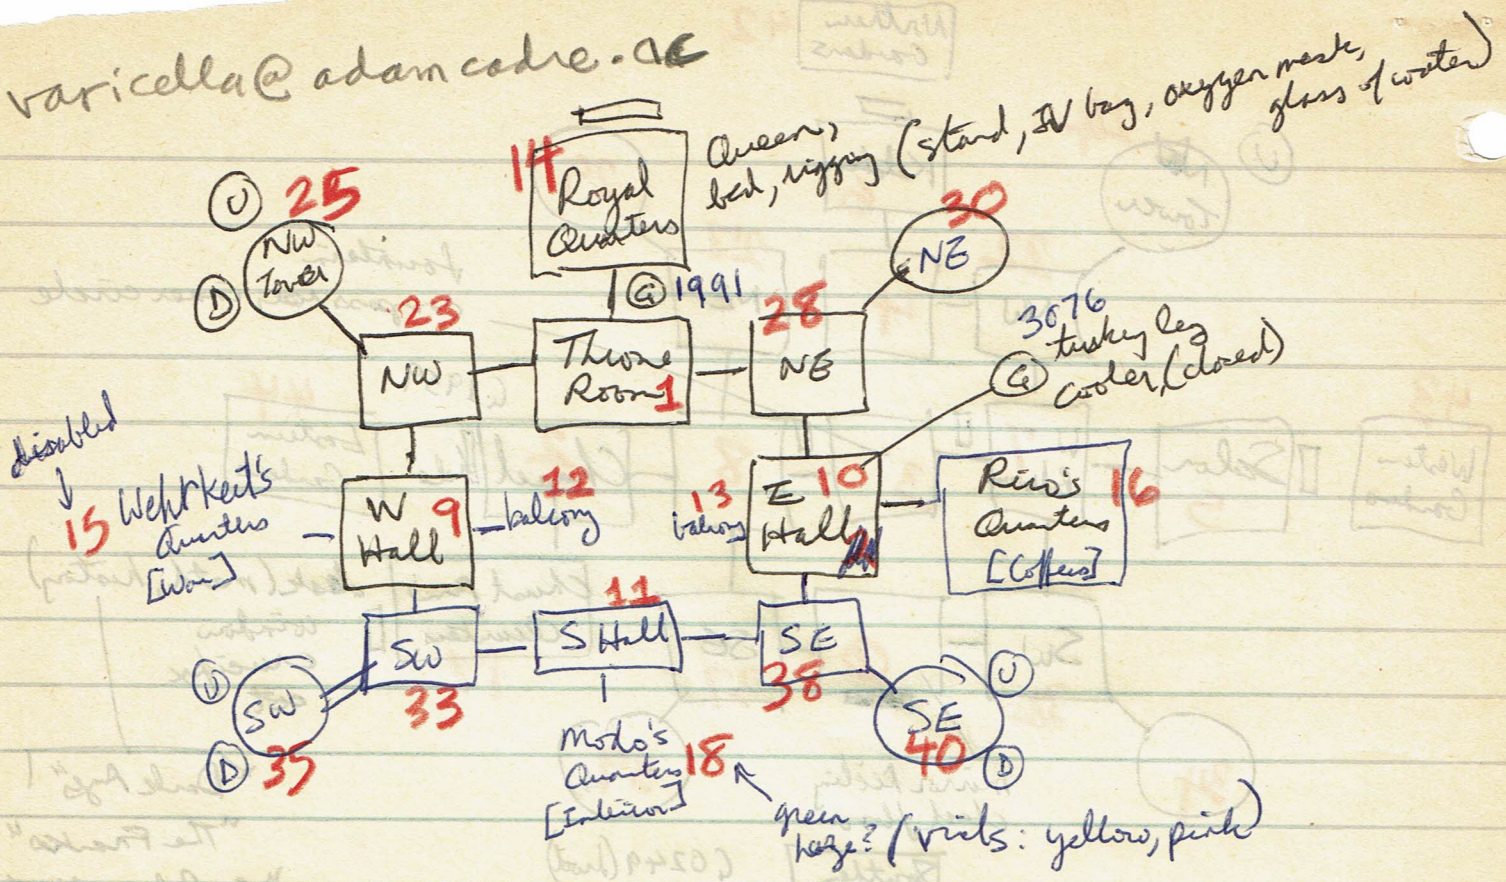 varicella@adamcadre.ac
14
Royal
Quarters
Queen,
bed, rigging (stand, IV bag, oxygen mask,
glass of water)
U 25
NW
Tower
D
30
NE
G 1991
23
NW
Throne
Room 1
28
NE
3076
G turkey leg
cooler, (closed)
disabled
15 Wehrkeit's
Quarters
[War]
W 9
Hall
12
balcony
13
balcony
E 10
Hall
Rico's 16
Quarters
[Coffers]
SW
33
11
S Hall
SE
38
U
SW
D 35
Modo's
Quarters 18
[Interior]
U
SE
40
D
green
haze? (vials: yellow, pink)